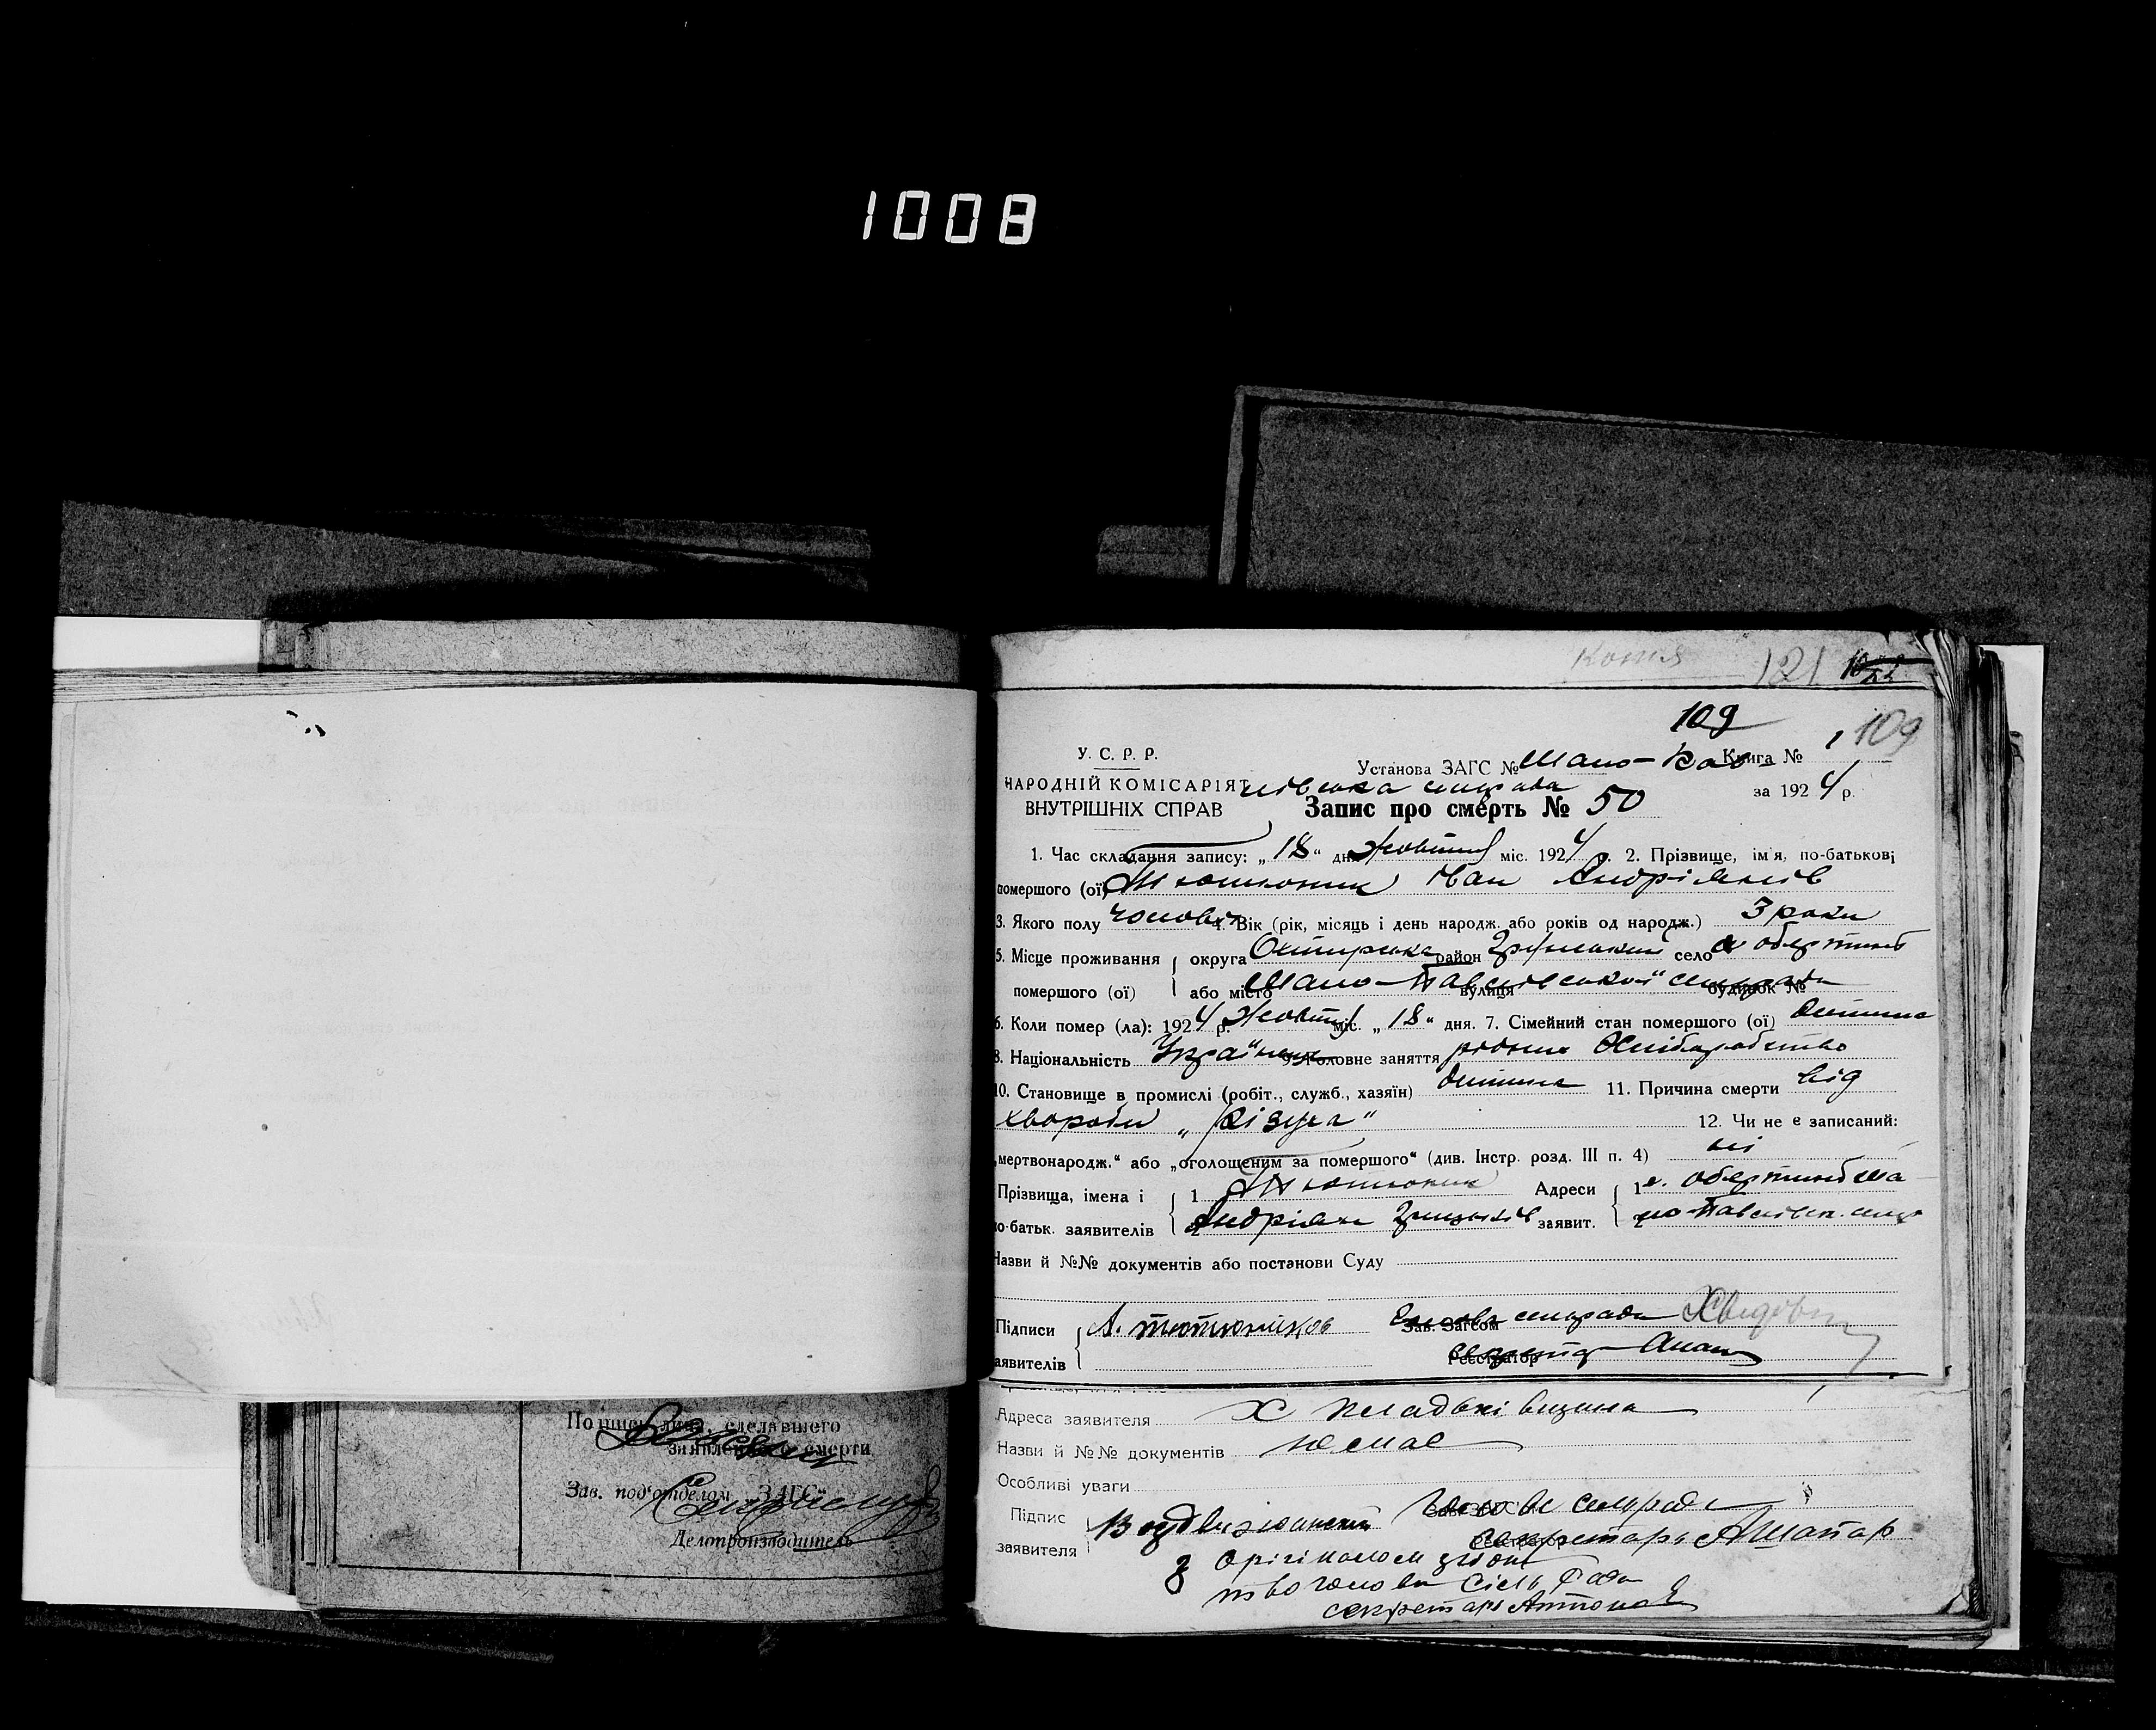 1008
Копія 121
109
1 109
У. С. Р. Р.
НАРОДНІЙ КОМІСАРІЯТ
ВНУТРІШНІХ СПРАВ
Установа ЗАГС № Мало-Пав- Книга №
лівська сільрада за 1924 р.
Запис про смерть № 50
1. Час складання запису: „18“ дня Жовтня міс. 1924 р. 2. Прізвище, ім'я, по-батькові
помершого (ої) Тютюник Іван Андріянів
3. Якого полу чолов. 4. Вік (рік, місяць і день народж. або років од народж.) 3 роки
5. Місце проживання округа Охтирська район Грунський село
помершого (ої) або місто Мало-Павлівської сільради вулиця будинок №
6. Коли помер (ла): 1924 р. Жовтня міс. „18“ дня. 7. Сімейний стан помершого (ої) дитина
8. Національність Українець 9. Головне заняття рідних Хліборобство
10. Становище в промислі (робіт., служб., хазяїн) дитина 11. Причина смерти від
хвороби „Різуха“ 12. Чи не є записаний:
„мертвонародж.“ або „оголошеним за помершого“ (див. Інстр. розд. III п. 4) ні
Прізвища, імена і 1 Тютюник Адреси 1 Ма-
по-батьк. заявителів 2 Андріян Грицьків заявит. 2 ло-Павлівск. сільр
Назви й №№ документів або постанови Суду
Підписи А. Тютюників Зав. Загсом Голова сільради
заявителів Реєстратор секретар
Адреса заявителя Х
Назви й №№ документів немає
Особливі уваги
Підпис Воздвиженский Голова сільради
заявителя Реєстратор секретарь А Шапар
З орігіналом згідно
голова Сіль Ради
секретарь
Подпись лица, сделавшего
заявление о смерти
Зав. под'отделом „ЗАГС“
Делопроизводитель